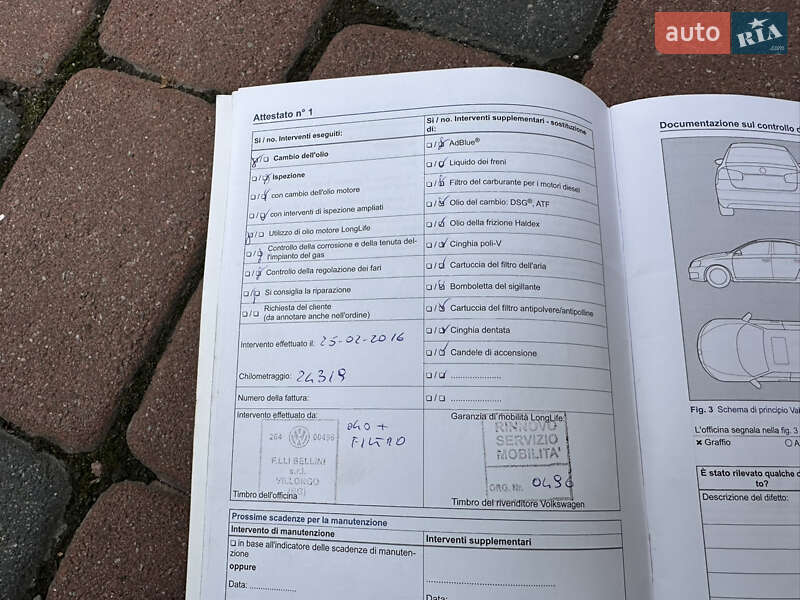 auto RIA.com
Attestato n° 1
Si / no. Interventi eseguiti:
☐/☐ Cambio dell'olio
☐/☐ Ispezione
☐/☐ con cambio dell'olio motore
☐/☐ con interventi di ispezione ampliati
☐/☐ Utilizzo di olio motore LongLife
☐/☐ Controllo della corrosione e della tenuta del-
l'impianto del gas
☐/☐ Controllo della regolazione dei fari
☐/☐ Si consiglia la riparazione
☐/☐ Richiesta del cliente
(da annotare anche nell'ordine)
Si / no. Interventi supplementari - sostituzione
di:
☐/☐ AdBlue®
☐/☐ Liquido dei freni
☐/☐ Filtro del carburante per i motori diesel
☐/☐ Olio del cambio: DSG®, ATF
☐/☐ Olio della frizione Haldex
☐/☐ Cinghia poli-V
☐/☐ Cartuccia del filtro dell'aria
☐/☐ Bomboletta del sigillante
☐/☐ Cartuccia del filtro antipolvere/antipolline
☐/☐ Cinghia dentata
☐/☐ Candele di accensione
☐/☐ .....................
Intervento effettuato il: 25-02-2016
Chilometraggio: 24319
Numero della fattura:
Intervento effettuato da:
264 00496
F.LLI BELLINI
s.r.l.
VILLONGO
(BG)
FILTRO
Timbro dell'officina
Garanzia di mobilità LongLife:
RINNOVO
SERVIZIO
MOBILITA'
ORG. Nr. 0496
Timbro del rivenditore Volkswagen
Prossime scadenze per la manutenzione
Intervento di manutenzione
☐ in base all'indicatore delle scadenze di manuten-
zione
oppure
Data: ....................
Interventi supplementari
Data:
Documentazione sul controllo
Fig. 3 Schema di principio
L'officina segnala nella fig. 3
× Graffio
È stato rilevato qualche
to?
Descrizione del difetto: